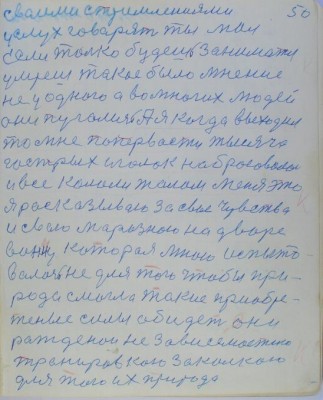 своими стримлениями 50
услух говарят ты мол
если толко будешь заниматся
умреш такое было мнение
не у одного а вомногих людей
они пугалися А я когда выходил
то мне попервасти тысяча
гострых иголок набросовалос
и все кололи жалом меня это
я расказываю за свае чувства
и сваю марозною на дворе
которая мною испыто-
валась не для того чтобы при-
рода смогла такие приобре-
теные силы обидет они
ражденои не зависемостию
транировкою закалкою
для того их природа